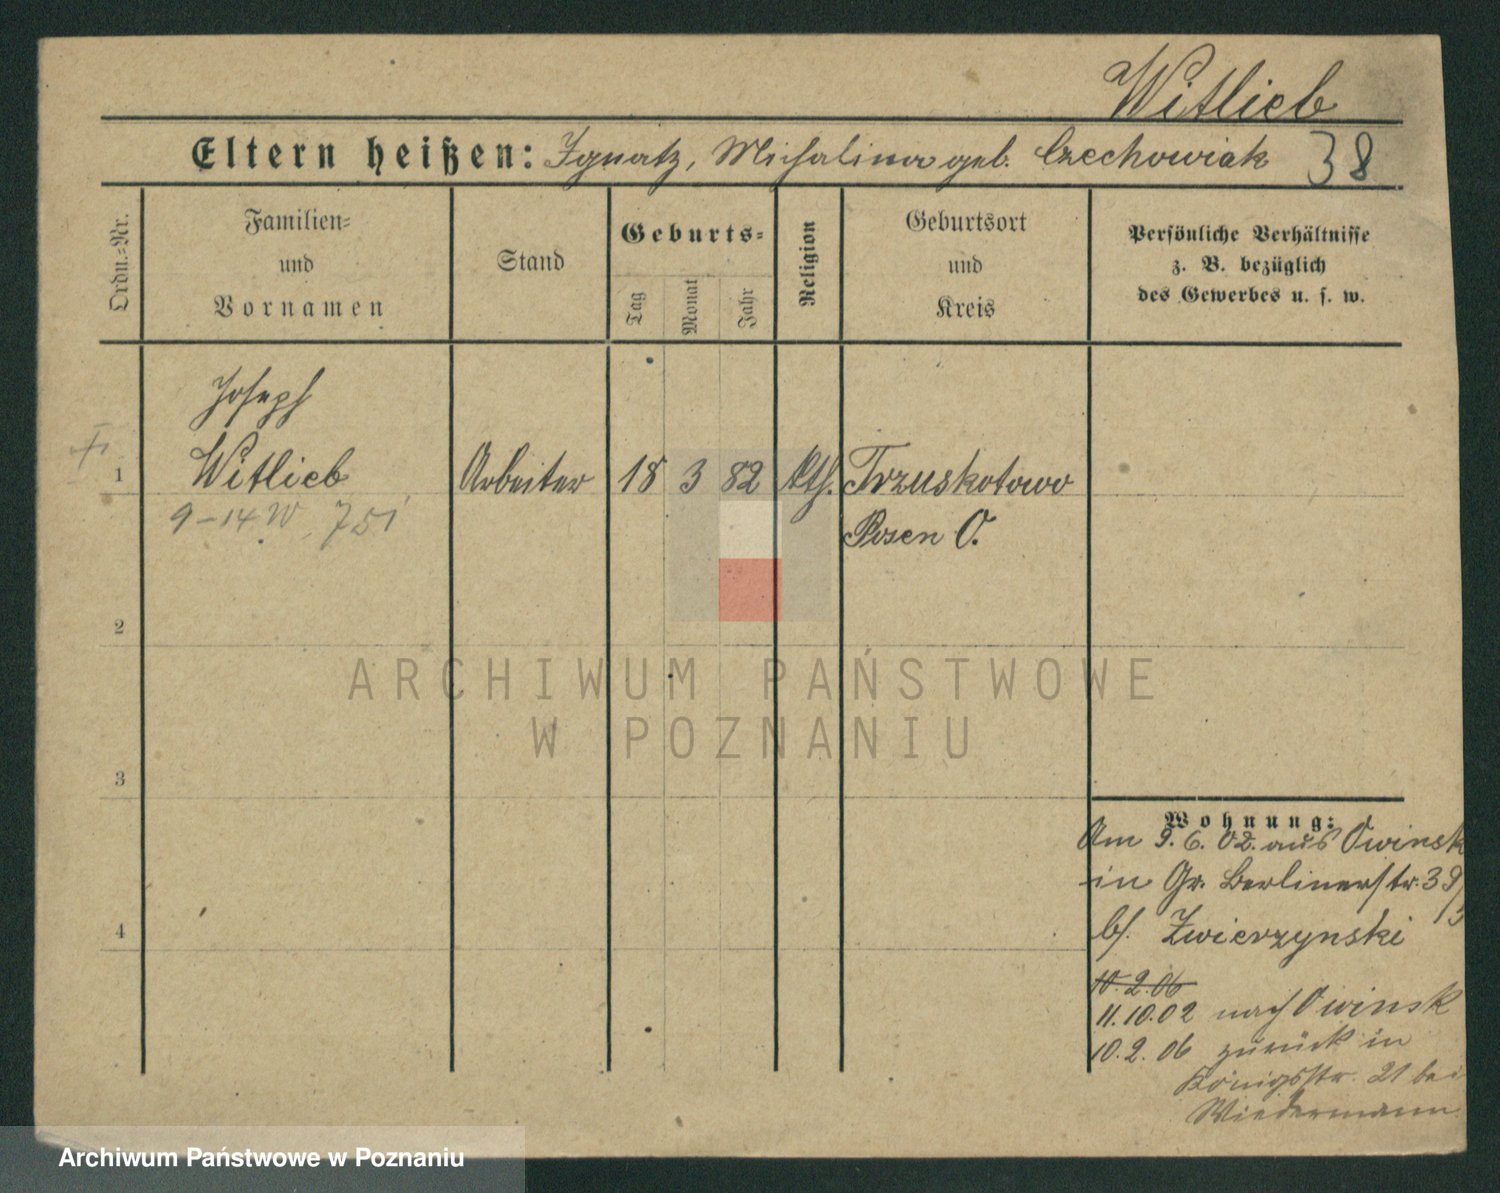 Witlieb
Eltern heißen: Ignatz, Michalina geb. Czechowiak 38
Ordn.-Nr.
Familien-
und
Vornamen
Stand
Geburts-
Tag
Monat
Jahr
Religion
Geburtsort
und
Kreis
Persönliche Verhältnisse
z. B. bezüglich
des Gewerbes u. s. w.
Joseph
1 Witlieb Arbeiter 18 3 82 kth. Trzuskotowo
9-14 W 751 Posen O.
2
3
4
Wohnung:
Am 9.6.02. aus Owinsk
in Gr. Berlinerstr. 39/
b/. Zwierzynski
10.2.06
11.10.02 nach Owinsk
10.2.06 zurück in
Königsstr. 21 bei
Wiedermann
ARCHIWUM PAŃSTWOWE
W POZNANIU
Archiwum Państwowe w Poznaniu